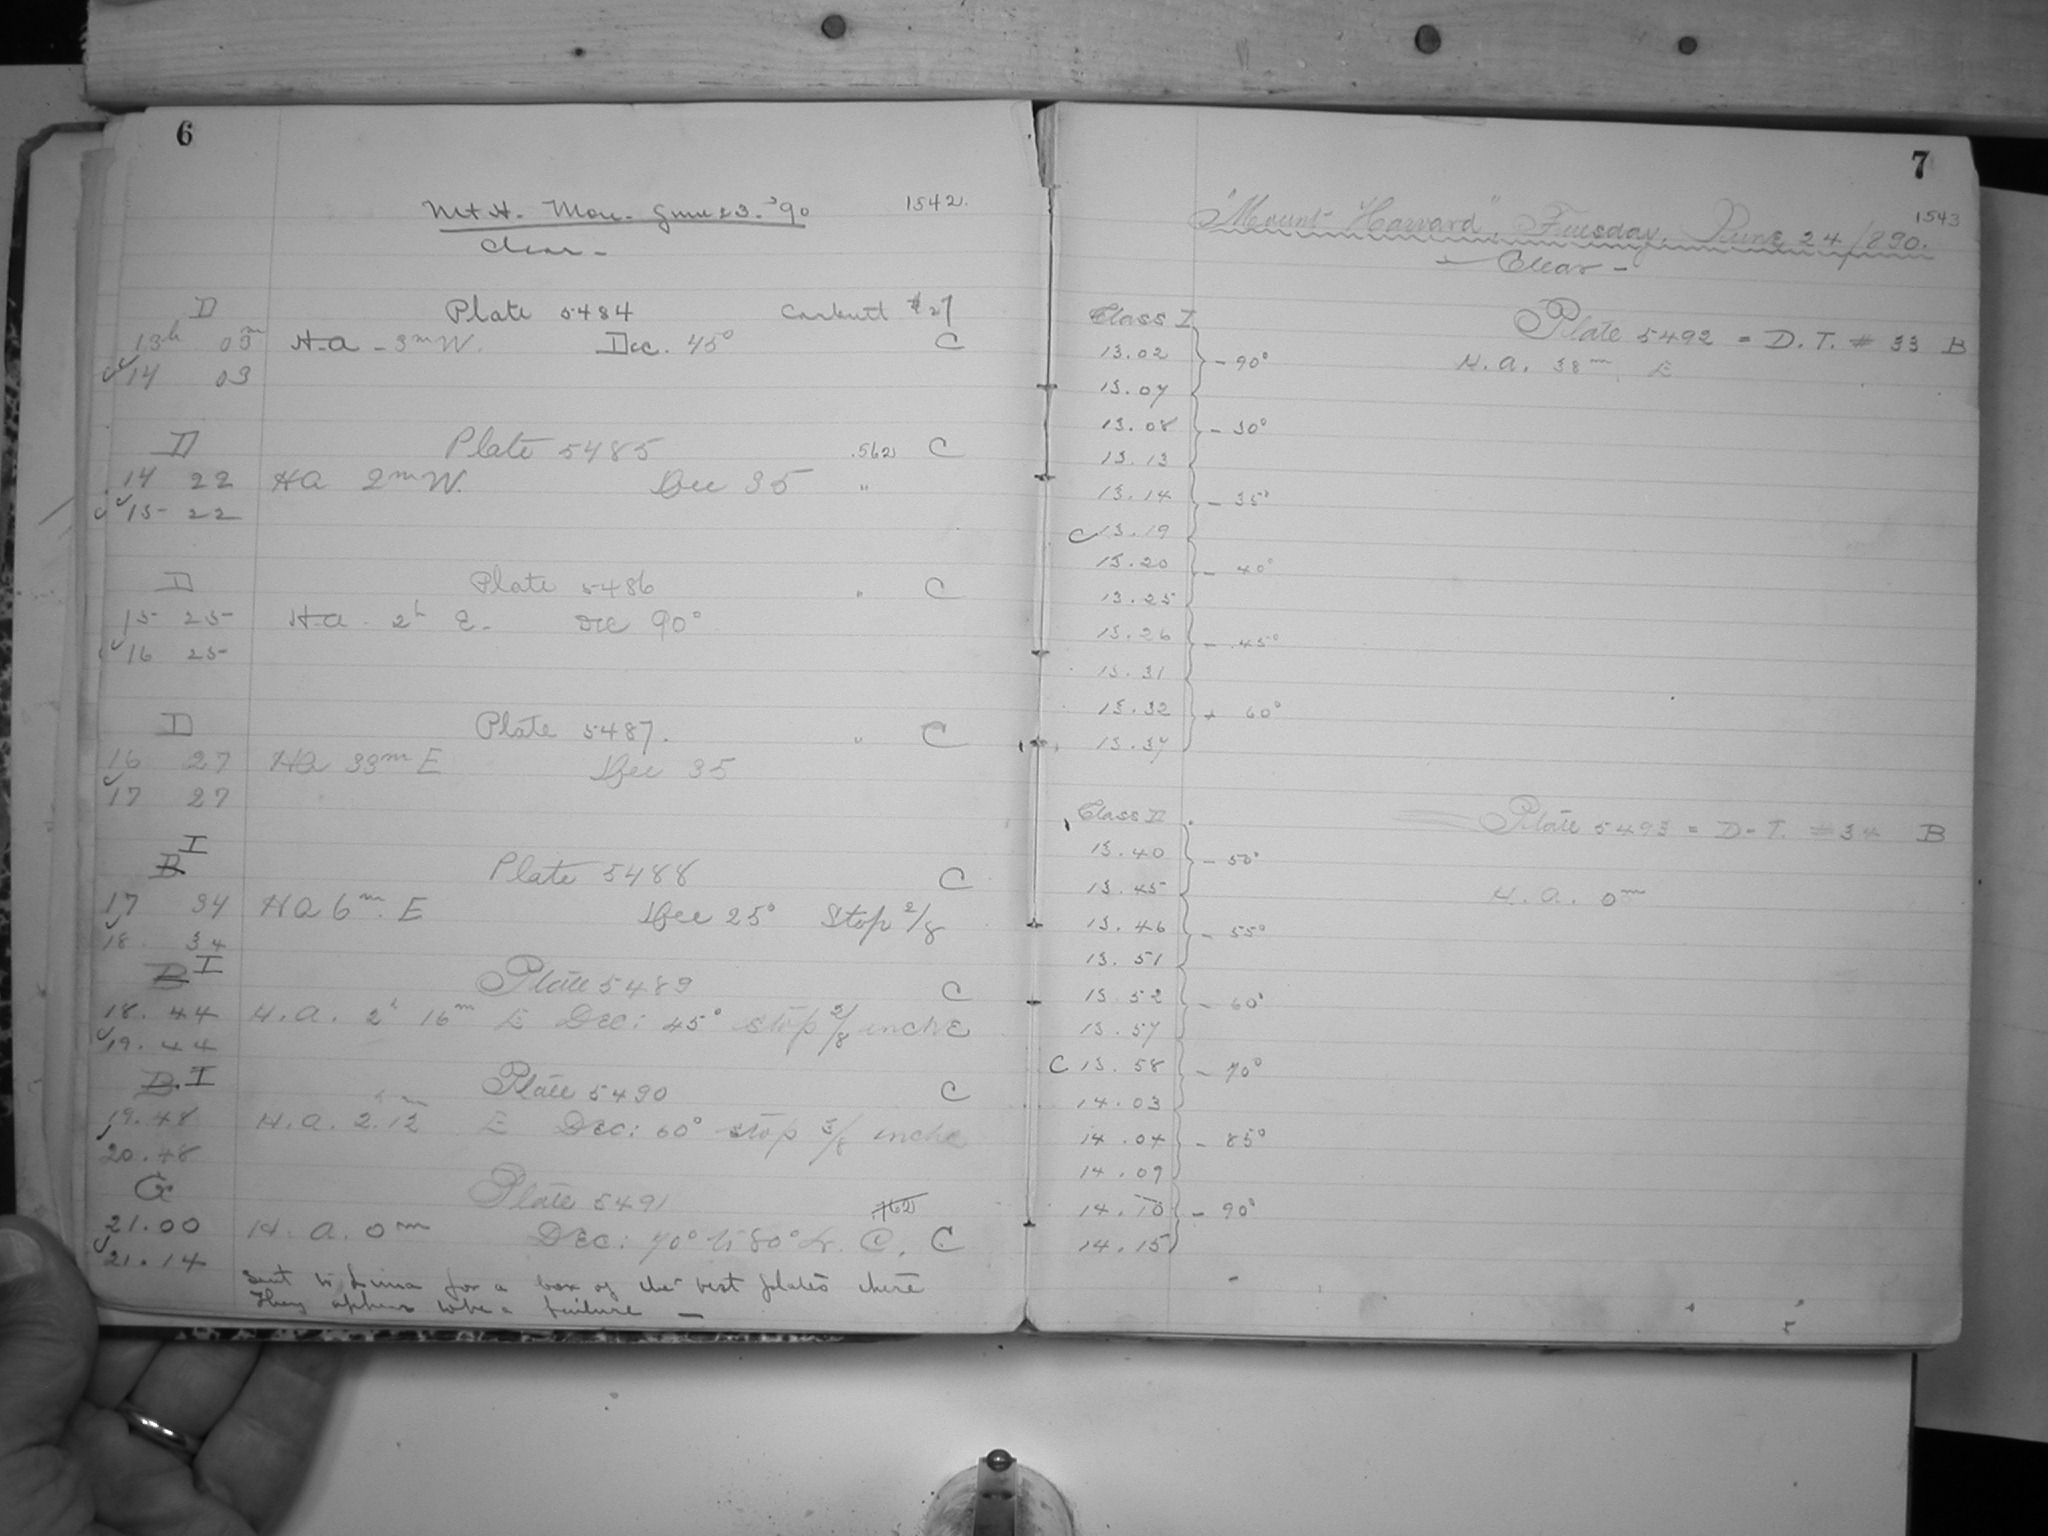 6
Mt H. Mon. June 23. '90 1542.
Clear -
D Plate 5484 Carbutt #27
13h 03m H.a - 3m W. Dec. 45° C
14 03
D Plate 5485 .562 C
14 22 HA 2m W. Dec 35 "
15 22
D Plate 5486 " C
15 25 H.a. 2h E. Dec 90°
16 25
D Plate 5487. " C
16 27 HA 33m E Dec 35
17 27
B I Plate 5488 C
17 34 HA 6m. E Dec 25° Stop 2/8
18. 34
B I Plate 5489 C
18. 44 H.A. 2h 16m E Dec: 45° stop 2/8 inche
19. 44
B. I Plate 5490 C
19. 48 H.A. 2h. 12m E Dec: 60° stop 3/8 inche
20. 48
G Plate 5491 .762
21.00 H. A. 0m Dec: 70° to 80° L. C. C
21.14
Sent to Lima for a box of the best plates there
They appear to be a failure —
7
"Mount Harvard", Tuesday, June 24/890. 1543
- Clear -
Class I Plate 5492 = D. T. # 33 B
13.02 - 90° H. A. 38m. E
13.07
13.08 - 30°
13.13
13.14 - 35°
C 13.19
13.20 - 40°
13.25
13.26 - 45°
13.31
13.32 + 60°
13.37
Class II Plate 5493 = D. T. # 34 B
13.40 - 50°
13.45 H. A. 0m
13.46 - 55°
13.51
13.52 - 60°
13.57
C 13.58 - 70°
14.03
14.04 - 85°
14.09
14.10 - 90°
14.15